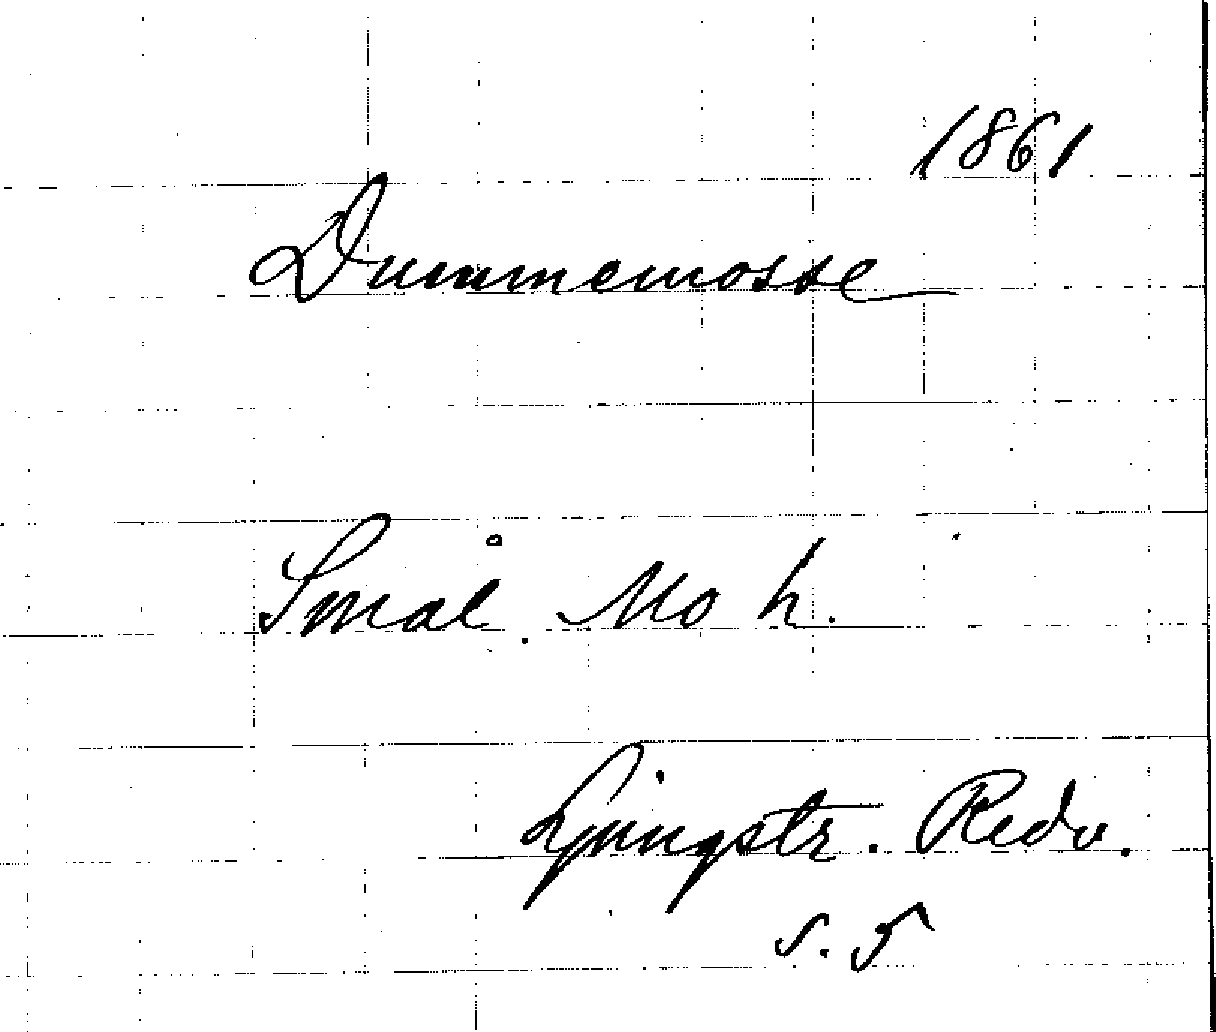 1861
Dummemosse
Smål. Mo h.
Ljungstr. Redo.
s. 5